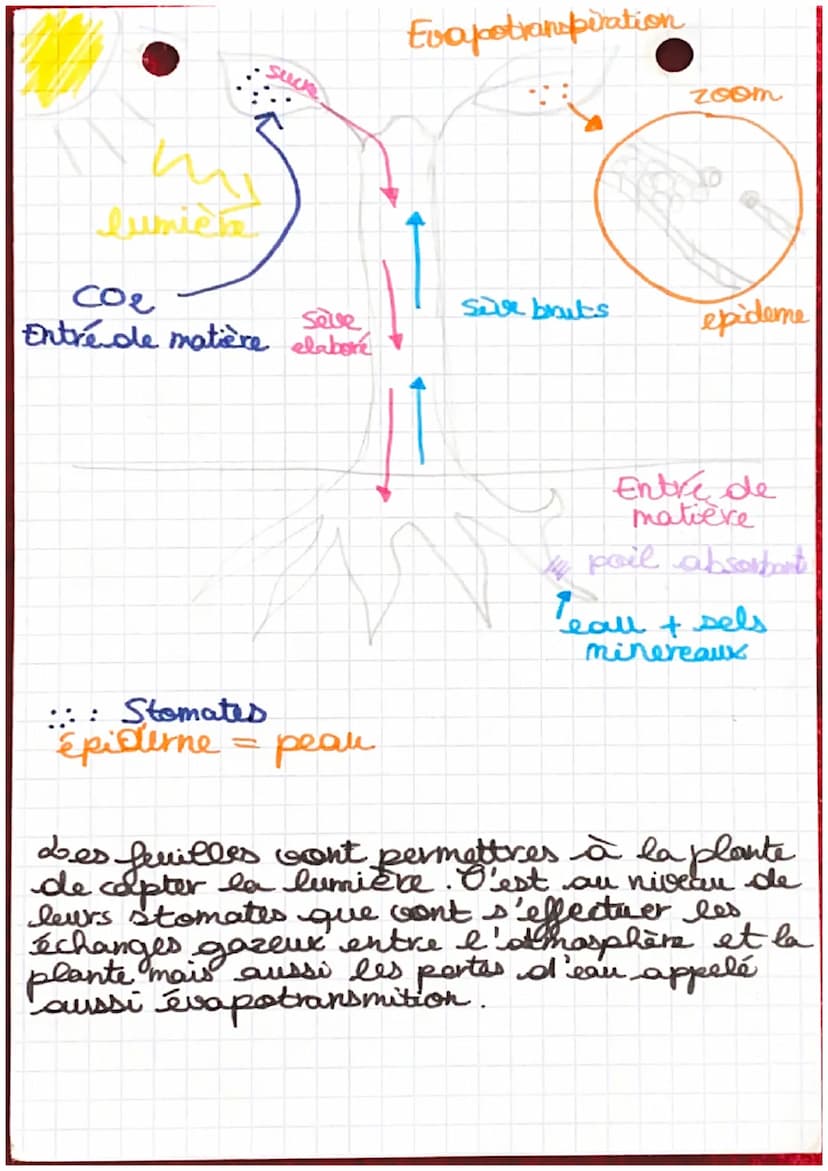 Evapotranspiration
sucre
zoom
lumière
CO2
Entré de matière
sève
elaboré
sève bruts
epiderme
Entré de
matière
poil absorbant
eau + sels
minereaux
: Stomates
épiderne = peau
Les feuilles vont permettres à la plante
de capter la lumière. C'est au niveau de
leurs stomates que vont s'effectuer les
échanges gazeux entre l'atmosphère et la
plante mais aussi les pertes d'eau appelé
aussi évapotransmition.